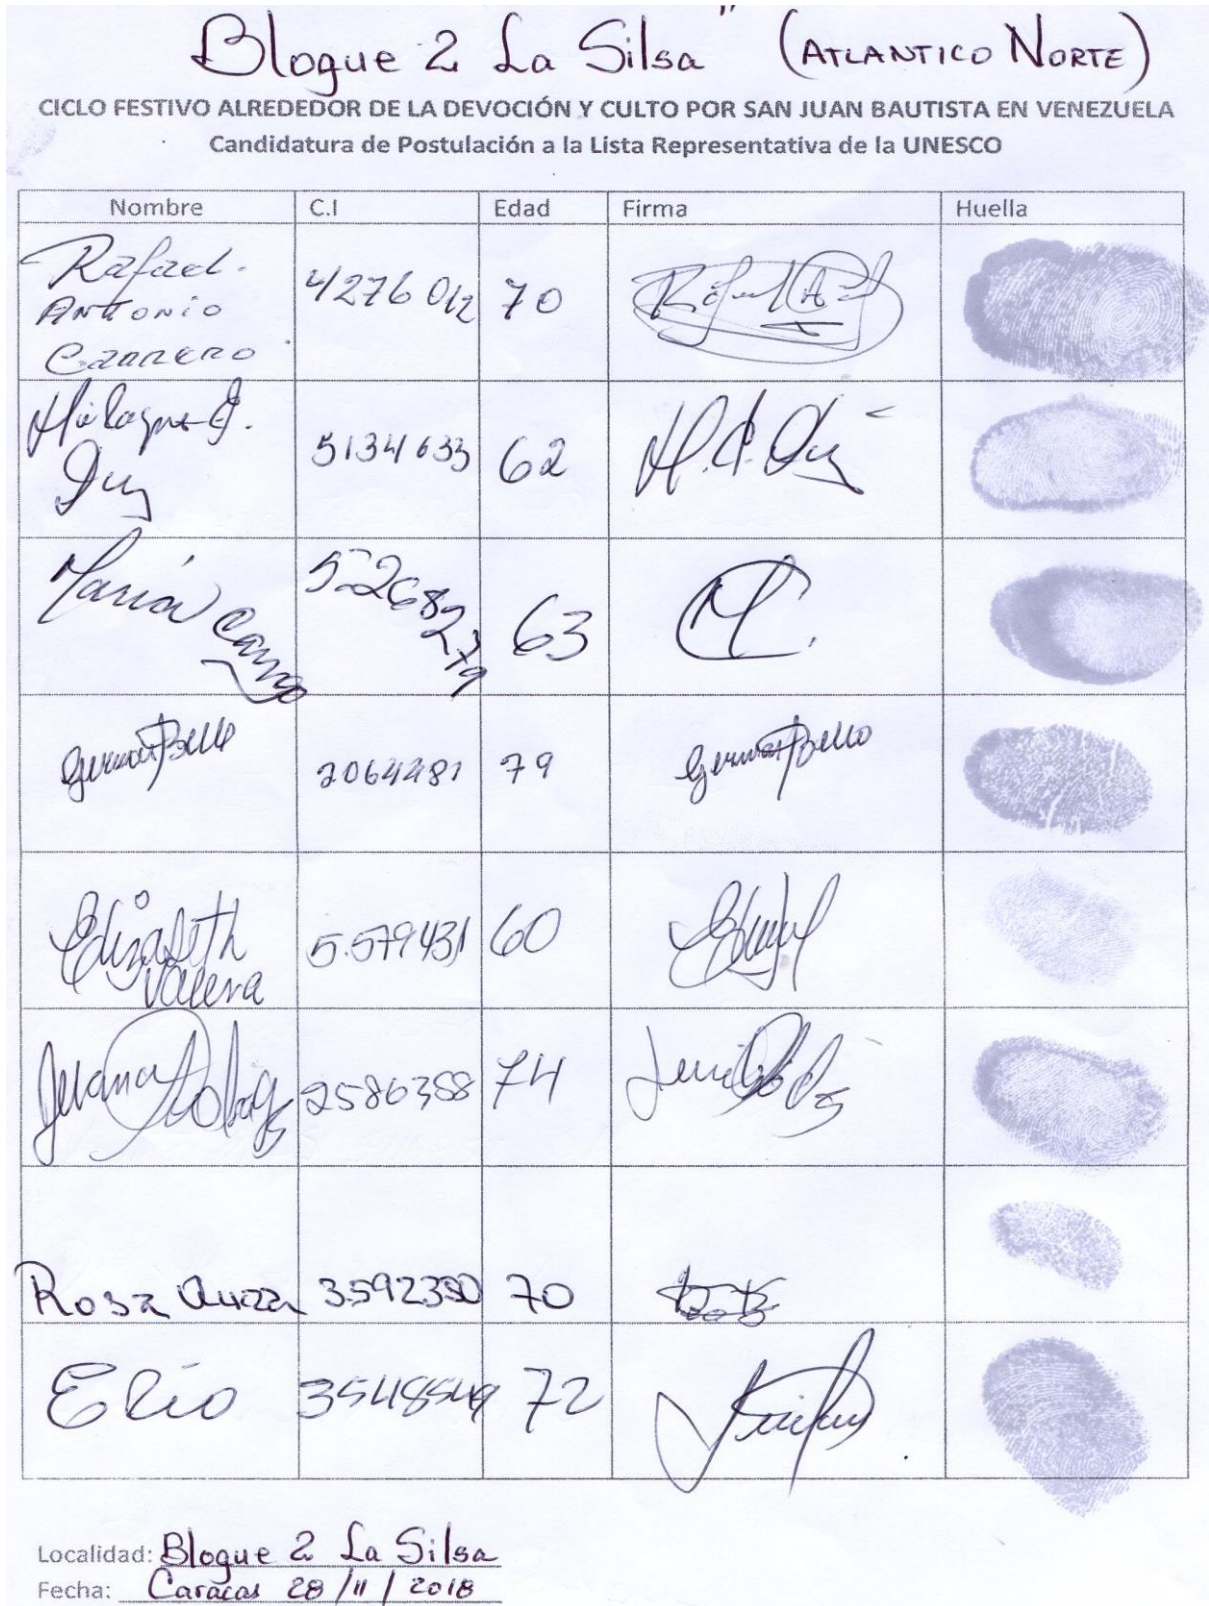 Bloque 2 La Silsa" (ATLANTICO NORTE)
CICLO FESTIVO ALREDEDOR DE LA DEVOCIÓN Y CULTO POR SAN JUAN BAUTISTA EN VENEZUELA
Candidatura de Postulación a la Lista Representativa de la UNESCO
Nombre C.I Edad Firma Huella
Rafael
Antonio
Carrero
4276012 70
Milagros
5134633 62
María
5268279 63
German Bello 79 German Bello
Elizabeth
Valera
5.579431 60
Juana 2586388 74
Rosa 3592350 70
Elio 3548549 72
Localidad: Bloque 2 La Silsa
Fecha: Caracas 28/11/2018